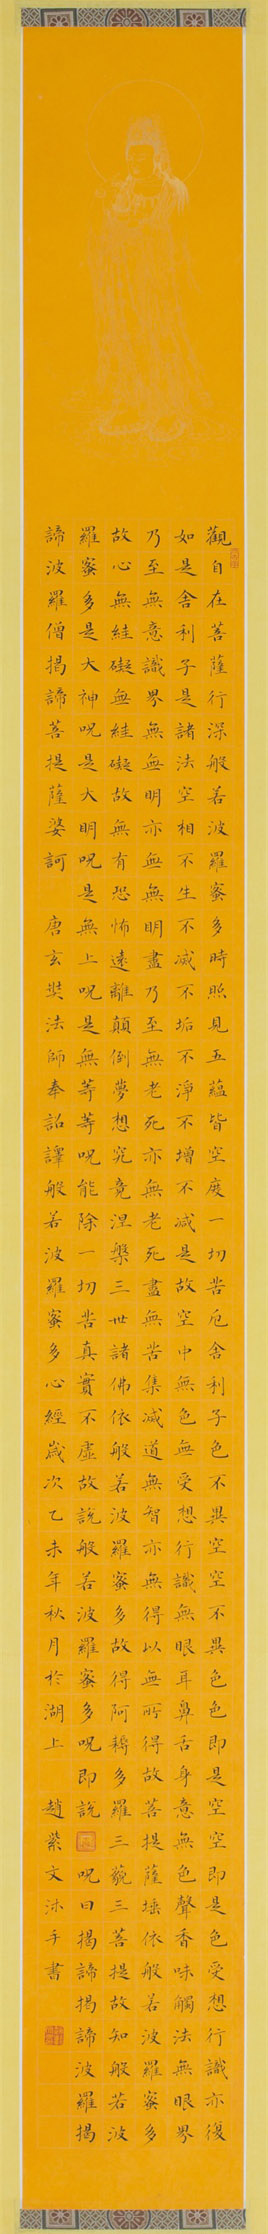 觀自在菩薩行深般若波羅蜜多時照見五蘊皆空度一切苦厄舍利子色不異空空不異色色即是空空即是色受想行識亦復
如是舍利子是諸法空相不生不滅不垢不淨不增不減是故空中無色無受想行識無眼耳鼻舌身意無色聲香味觸法無眼界
乃至無意識界無無明亦無無明盡乃至無老死亦無老死盡無苦集滅道無智亦無得以無所得故菩提薩埵依般若波羅蜜多
故心無絓礙無絓礙故無有恐怖遠離顛倒夢想究竟涅槃三世諸佛依般若波羅蜜多故得阿耨多羅三藐三菩提故知般若波
羅蜜多是大神呪是大明呪是無上呪是無等等呪能除一切苦真實不虛故說般若波羅蜜多呪即說呪曰揭諦揭諦波羅揭
諦波羅僧揭諦菩提薩婆訶 唐玄奘法師奉詔譯般若波羅蜜多心經歲次乙未年秋月於湖上 趙紫文沐手書